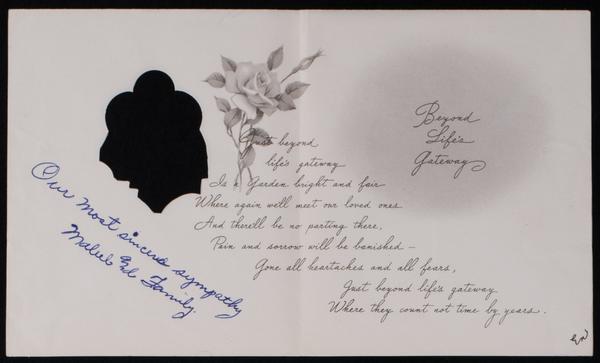 Beyond
Life's
Gateway
Just beyond
life's gateway
Is a Garden bright and fair
Where again we'll meet our loved ones
And there'll be no parting there,
Pain and sorrow will be banished —
Gone all heartaches and all fears,
Just beyond life's gateway
Where they count not time by years.
Our most sincere sympathy
Family.